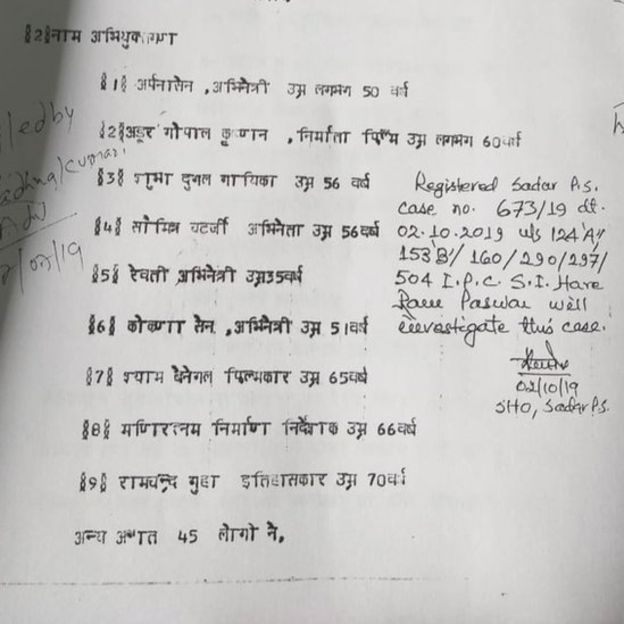 §2§नाम अभियुक्तगण
§1§ अर्पनासेन ,अभिनेत्री उम्र लगभग 50 वर्ष
§2§अडूर गोपाल कृष्णन , निर्माता फिल्म उम्र लगभग 60वर्ष
§3§ शुभा दुगल गायिका उम्र 56 वर्ष
§4§ सौमित्र चटर्जी अभिनेता उम्र 56वर्ष
§5§ रेवती अभिनेत्री उम्र35वर्ष
§6§ कोंकणा सेन ,अभिनेत्री उम्र 51वर्ष
§7§ श्याम वेनेगल फिल्मकार उम्र 65वर्ष
§8§ मणिरत्नम निर्माण निर्देशक उम्र 66वर्ष
§9§ रामचन्द्र गुहा इतिहासकार उम्र 70वर्ष
अन्य अज्ञात 45 लोगो ने,
Registered Sadar P.S.
case no. 673/19 dt.
02.10.2019 u/s 124'A'/
153'B'/ 160/290/297/
504 I.P.C S.I. Hare
Ram Paswan will
investigate this case.
02/10/19
SHO, Sadar P.S.